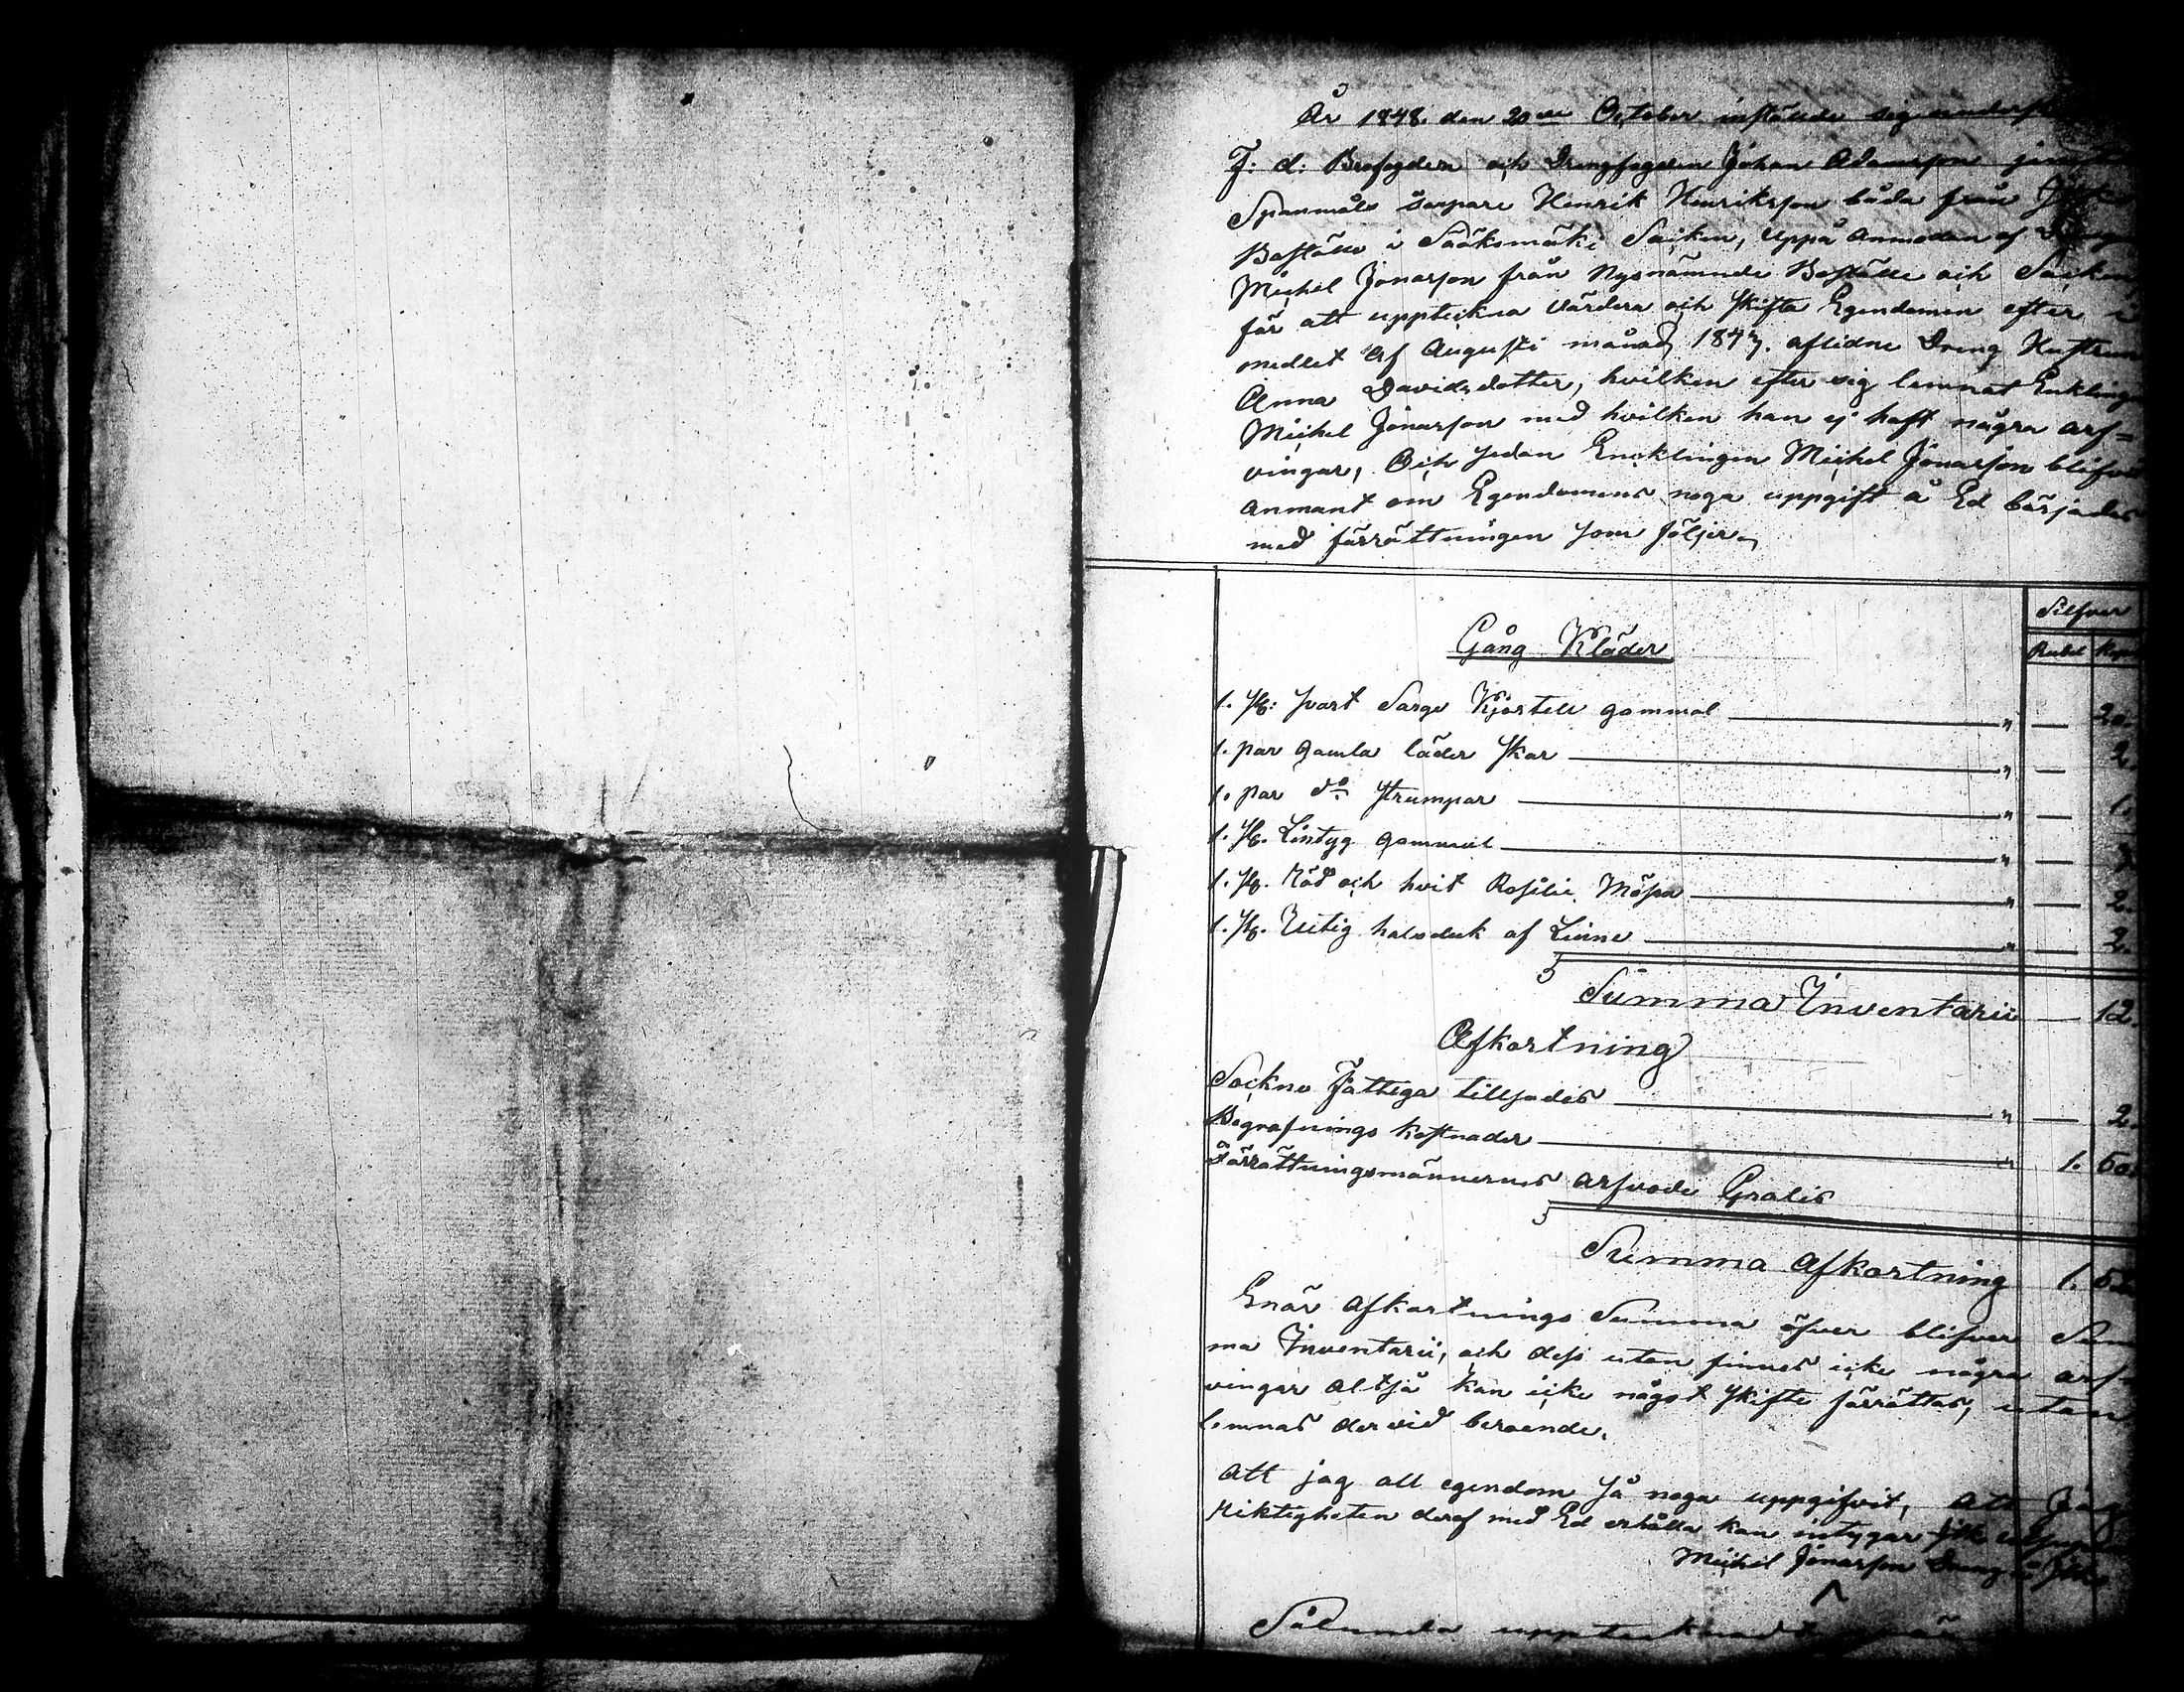 År 1848. den 20de October instälde sig
F: d: Brofogden och Drengfogden Johan Adamsson
Spanmåls Henrik Henriksson båda från
Boställe i Sääksmäki Soiken, uppå anmodan af
Michel Jonasson från Nysnämnde Boställe och Soiken
för att uppteckna värdera och skifta Egendomen efter i
medlet af Augusti månad 1847. aflidne Dreng Hustrun
Anna Davidsdotter, hvilken efter sig lemnat Enklingen
Michel Jonasson med hvilken han ej haft några arf=
vingar, Och sedan Encklingen Michel Jonasson
anmant om Egendomens noga uppgift å Ed börjades
med förrättningen som följer,
Silfver
Rubel Kop
Gång Kläder
1. st: svart Sargs Kjortell gammal " — 20.
1. par gamla läder skor " — 2.
1. par do strumpor " — 1.
1. st. Lintyg gammal " —
1. st. Röd och hvit Mössa " — 2.
1. st. halsduk af Linne " — 2.
Summa Inventarii — 12.
Afkortning
Sockne Fattiga tillsades " — 2.
Begrafnings kostnader " 1. 50.
Förrättningsmännernes arfvode Gratis
Summa Afkortning 1. 52
Enär Afkortnings Summa öfver blifver Sum
ma Inventarii, och dess utan finnes icke några arf-
vingar altså kan icke något skifte förrättas, utan
lemnas der vid beroende.
Att jag all egendom så noga uppgifvit, att jag
Riktigheten deraf med Ed erhålla kan intygar
Michel Jonasson Dreng
Sålunda upptecknadt